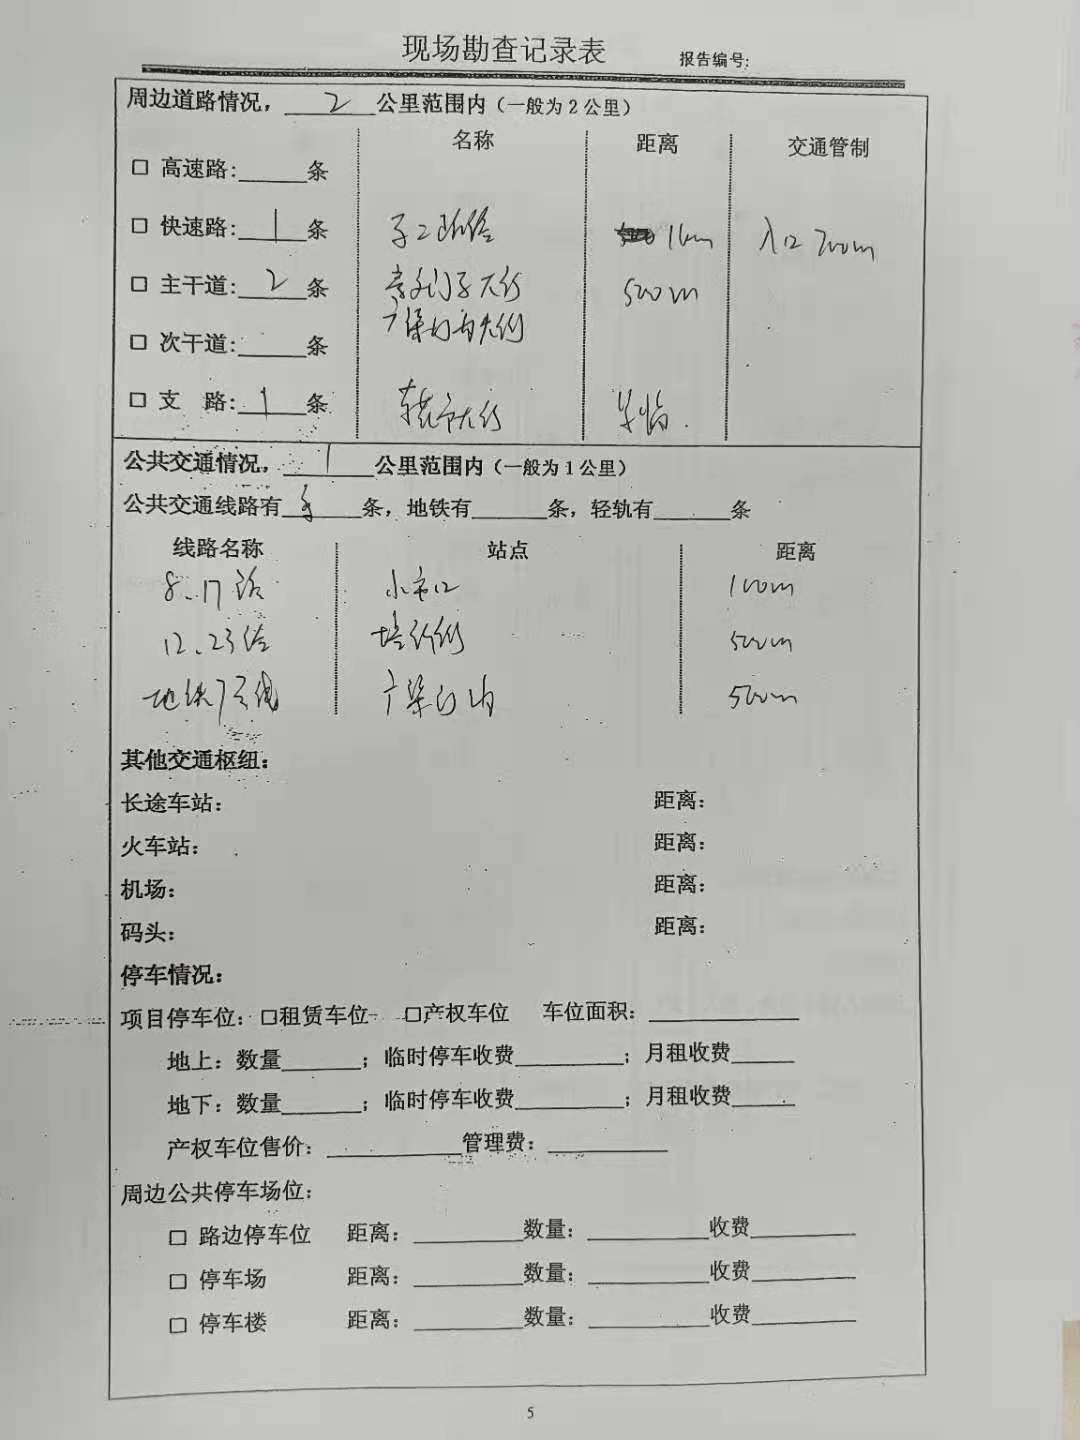 现场勘查记录表 报告编号:
周边道路情况，2公里范围内（一般为2公里）
名称 距离 交通管制
□ 高速路:______条
□ 快速路: 1 条 东二环路 1km 入口 700m
□ 主干道: 2 条 崇文门外大街 500m
广渠门内大街
□ 次干道:______条
□ 支 路: 1 条 大街
公共交通情况，1公里范围内（一般为1公里）
公共交通线路有 多 条，地铁有______条，轻轨有______条
线路名称 站点 距离
8、17路 小市口 100m
12、23路 500m
地铁7号线 广渠门内 500m
其他交通枢纽：
长途车站： 距离：
火车站： 距离：
机场： 距离：
码头： 距离：
停车情况：
项目停车位：□租赁车位 □产权车位 车位面积：______
地上：数量______；临时停车收费______；月租收费______
地下：数量______；临时停车收费______；月租收费______
产权车位售价：______管理费：______
周边公共停车场位：
□ 路边停车位 距离：______数量：______收费______
□ 停车场 距离：______数量：______收费______
□ 停车楼 距离：______数量：______收费______
5